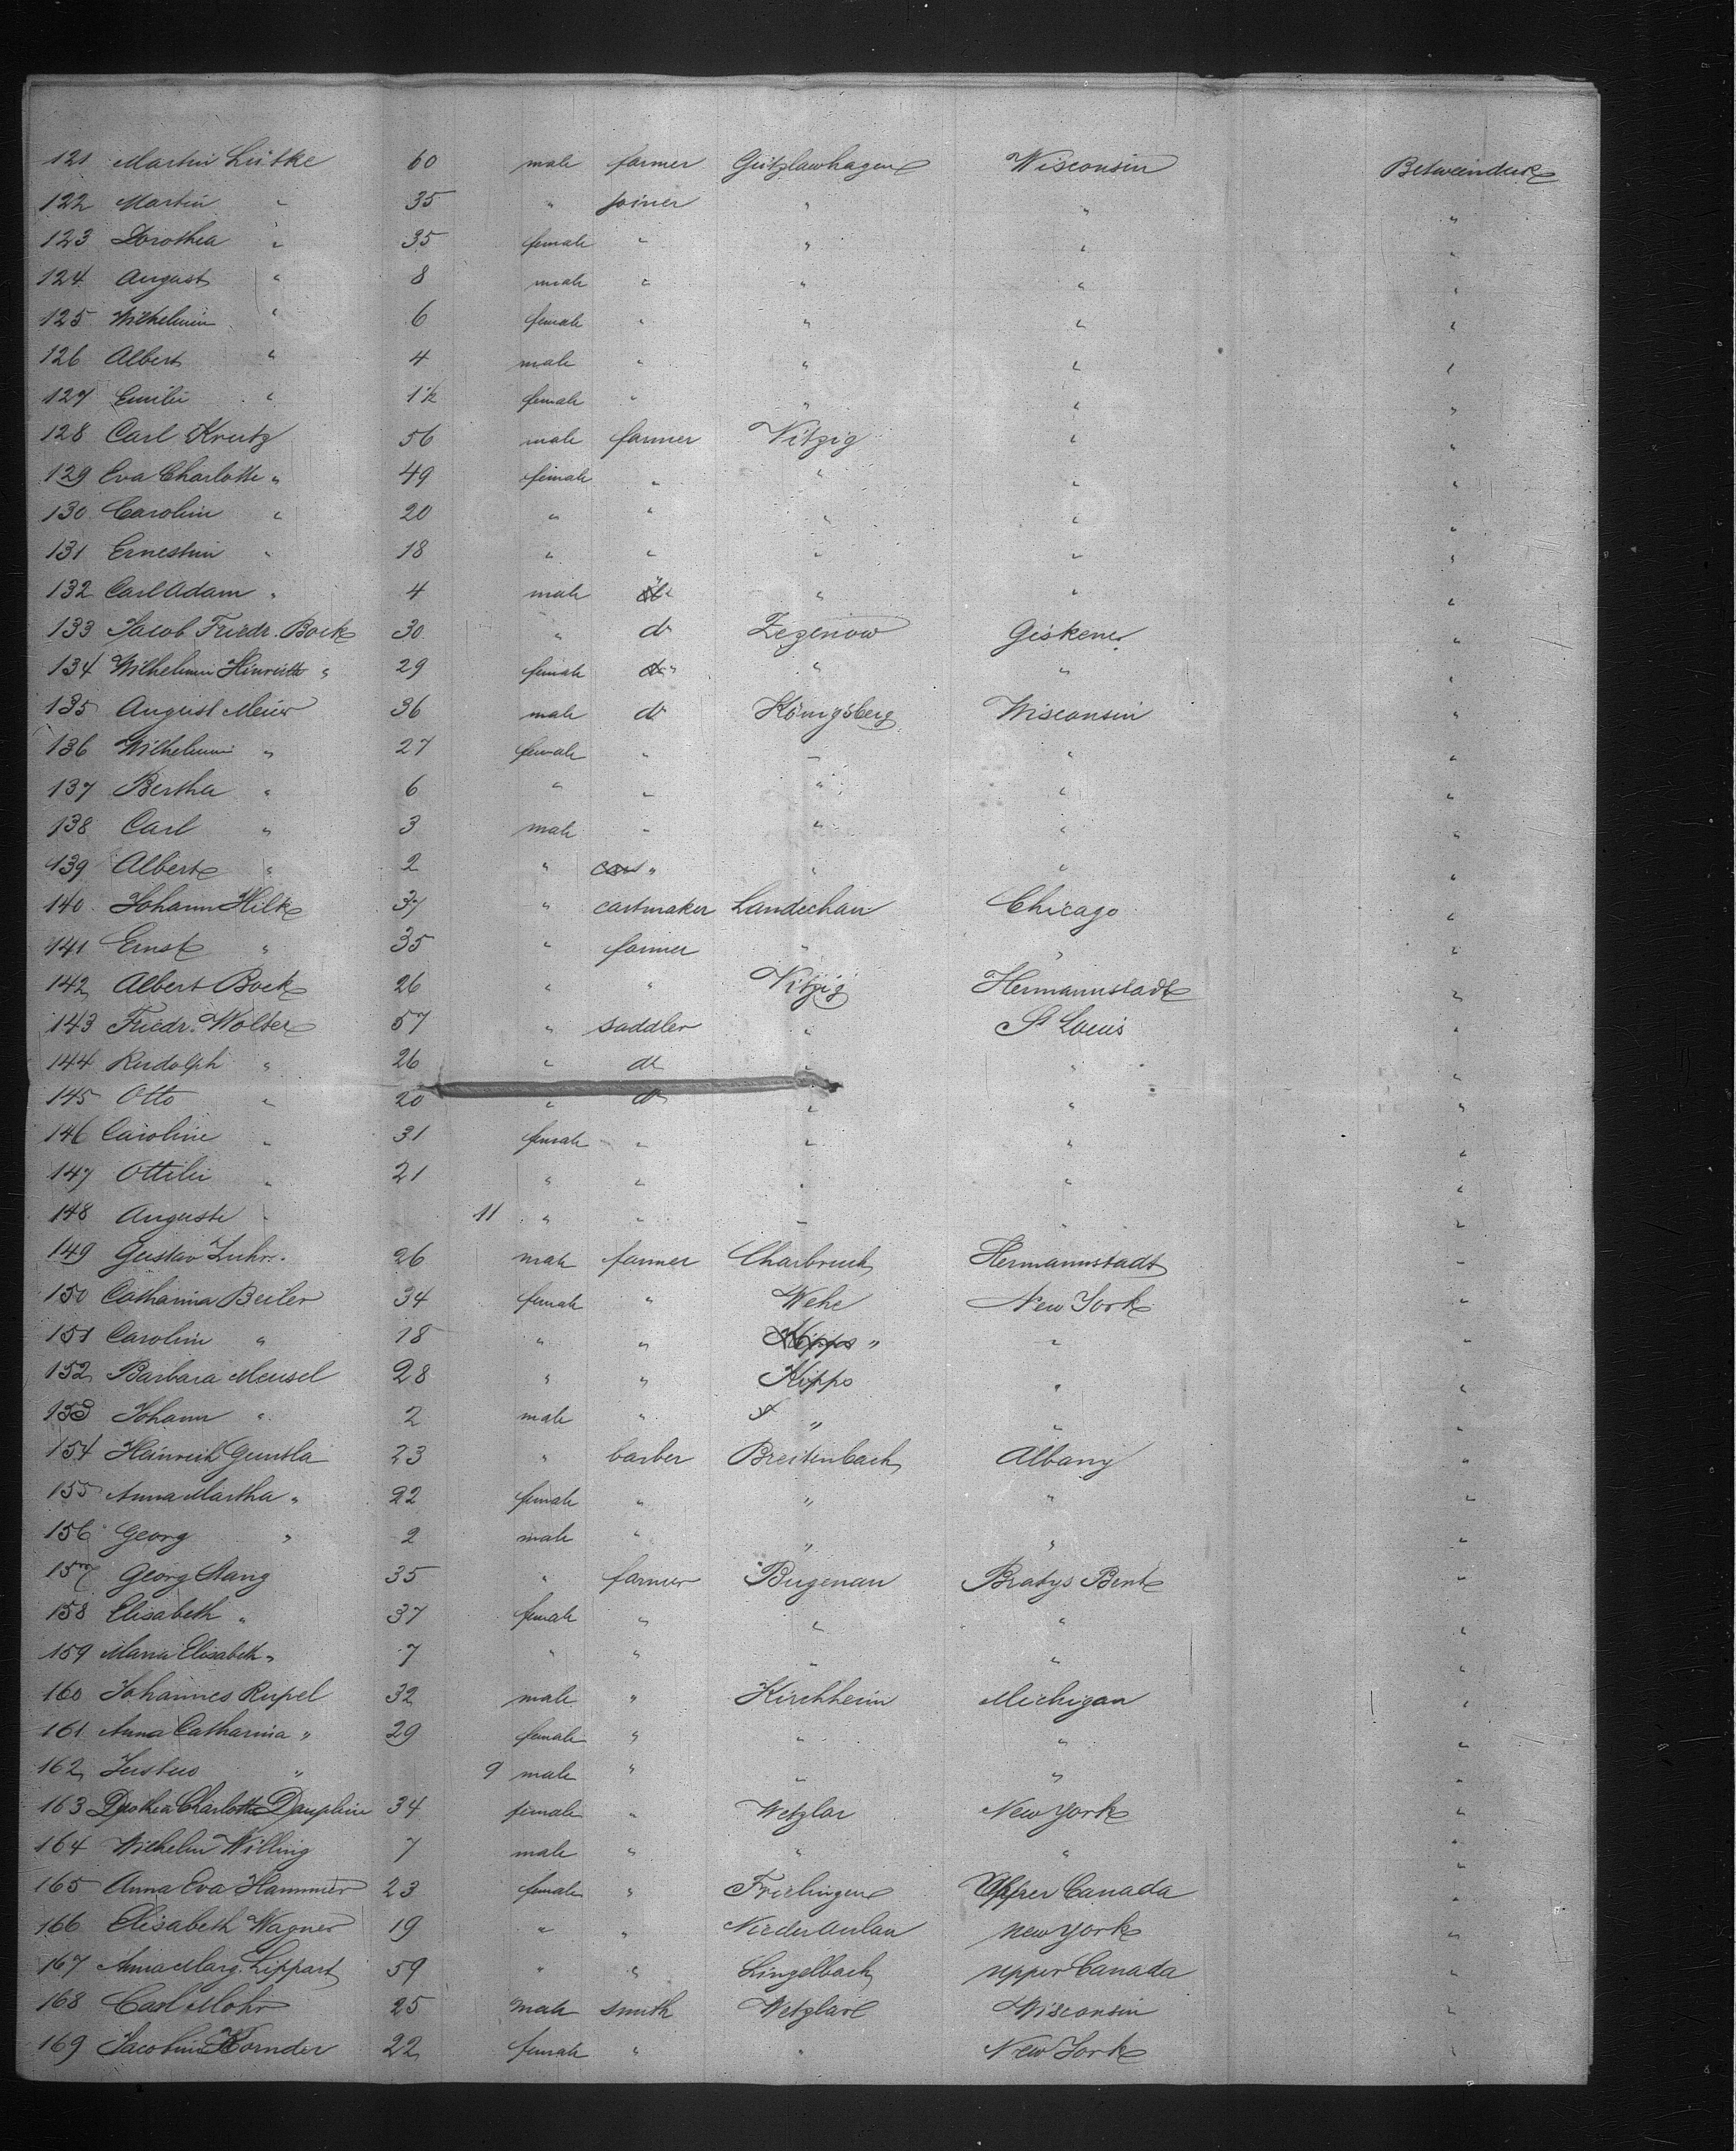 121 Martin Lütke 60 male farmer Gützlawhagen Wisconsin Betweendeck
122 Martin " 35 " joiner " " "
123 Dorothea " 35 female " " " "
124 August " 8 male " " " "
125 Wilhelmin " 6 female " " " "
126 Albert " 4 male " " " "
127 Emilie " 1½ female " " " "
128 Carl Krutz 56 male farmer Vitzig " "
129 Eva Charlotte " 49 female " " " "
130 Carolin " 20 " " " " "
131 Ernestin " 18 " " " " "
132 Carl Adam " 4 male " " " "
133 Jacob Friedr. Bock 30 " do Zezenow Giskener "
134 Wilhelmin Hinriette " 29 female " " " "
135 August Meier 36 male do Königsberg Wisconsin "
136 Wilhelmin " 27 female " " " "
137 Bertha " 6 " " " " "
138 Carl " 3 male " " " "
139 Albert " 2 " " " " "
140 Johann Hilk 37 " cartmaker Landechau Chicago "
141 Ernst " 35 " farmer " " "
142 Albert Bock 26 " " Vitzig Hermannstadt "
143 Friedr. Wolter 57 " saddler " St Louis "
144 Rudolph " 26 " do " " "
145 Otto " 20 " do " " "
146 Caroline " 31 female " " " "
147 Ottilie " 21 " " " " "
148 Auguste " 11 " " " " "
149 Gustav Luhr. 26 male farmer Charbruch Hermannstadt "
150 Catharina Beiler 34 female " Wehe New York "
151 Carolin " 18 " " " " "
152 Barbara Meusel 28 " " Kipps " "
153 Johann " 2 male " " " "
154 Heinrich Guntla 23 " barber Breitenbach Albany "
155 Anna Martha " 22 female " " " "
156 Georg " 2 male " " " "
157 Georg Stang 35 " farmer Bugenau Bratys Bent "
158 Elisabeth " 37 female " " " "
159 Maria Elisabeth " 7 " " " " "
160 Johannes Rupel 32 male " Kirchheim Michigan "
161 Anna Catharina " 29 female " " " "
162 Justus " 9 male " " " "
163 Dorothea Charlotte Dauphin 34 female " Wetzlar New York "
164 Wilhelm Willing 7 male " " " "
165 Anna Eva Hammer 23 female " Frielingen Upper Canada "
166 Elisabeth Wagner 19 " " Nieder Aulau New York "
167 Anna Marg. Lippart 59 " " Lingelbach Upper Canada "
168 Carl Mohr 25 male smith Wetzlar Wisconsin "
169 Jacobin Kornder 22 female " " New York "